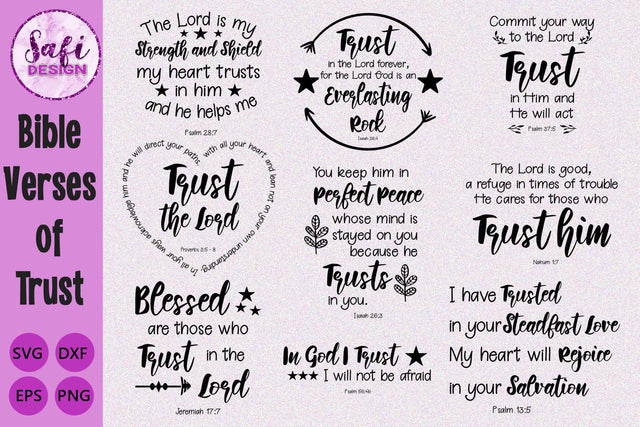 Safi
DESIGN
Bible
Verses
of
Trust
SVG
DXF
EPS
PNG
The Lord is my
Strength and Shield
my heart trusts
in him
and he helps me
Psalm 28:7
Trust
in the Lord forever,
for the Lord God is an
Everlasting
Rock
Isaiah 26:4
Commit your way
to the Lord
Trust
in Him and
He will act
Psalm 37:5
with all your heart and lean not on your own understanding. In all your ways acknowledge him and he will direct your paths.
Trust
the Lord
Proverbs 3:5 - 8
You keep him in
Perfect Peace
whose mind is
stayed on you
because he
Trusts
in you.
Isaiah 26:3
The Lord is good,
a refuge in times of trouble
He cares for those who
Trust him
Nahum 1:7
Blessed
are those who
Trust in the
Lord
Jeremiah 17:7
In God I Trust
I will not be afraid
I have Trusted
in your Steadfast Love
My heart will Rejoice
in your Salvation
Psalm 13:5